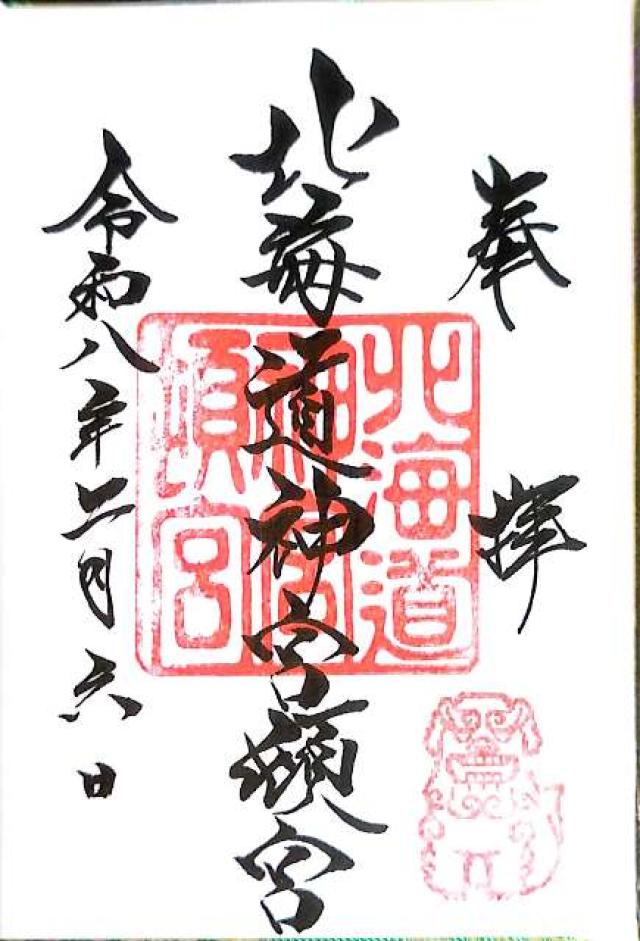 奉拝
北海道神宮頓宮
北海道
神宮
頓宮
令和八年二月六日